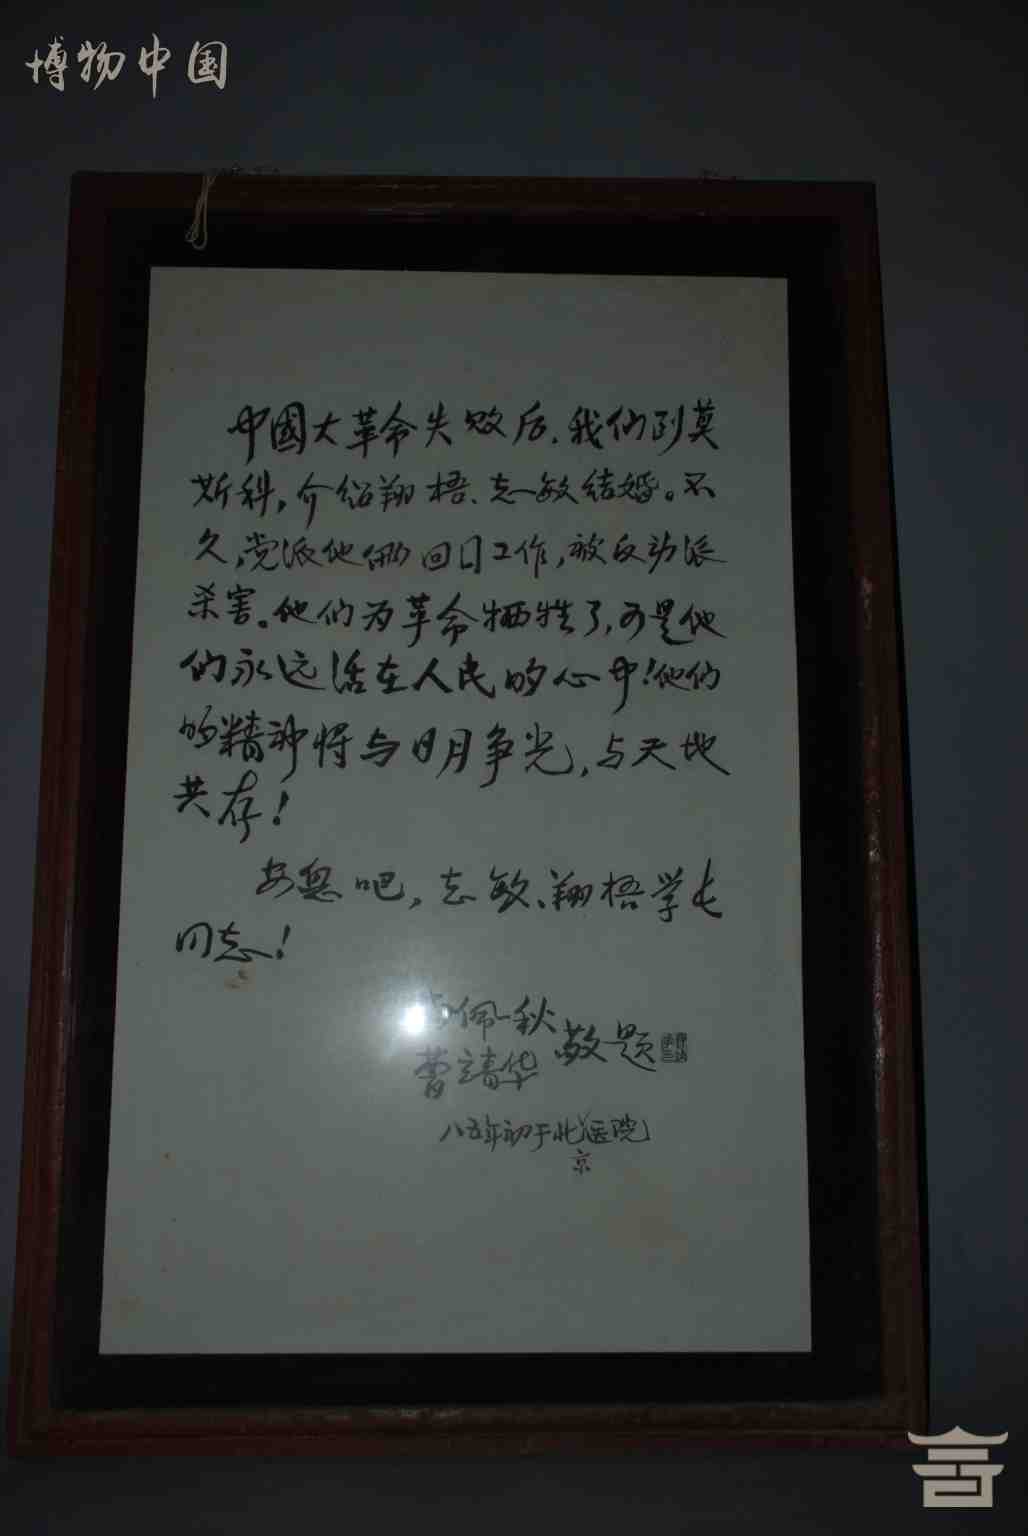 博物中国
中國大革命失败后，我们到莫
斯科，介绍翔梧、志敏结婚。不
久，党派他俩回国工作，被反动派
杀害。他们为革命牺牲了，可是他
们永远活在人民的心中！他们
的精神将与日月争光，与天地
共存！
安息吧，志敏、翔梧学长
同志！
佩秋
曹靖华 敬题
八五年初于北京医院